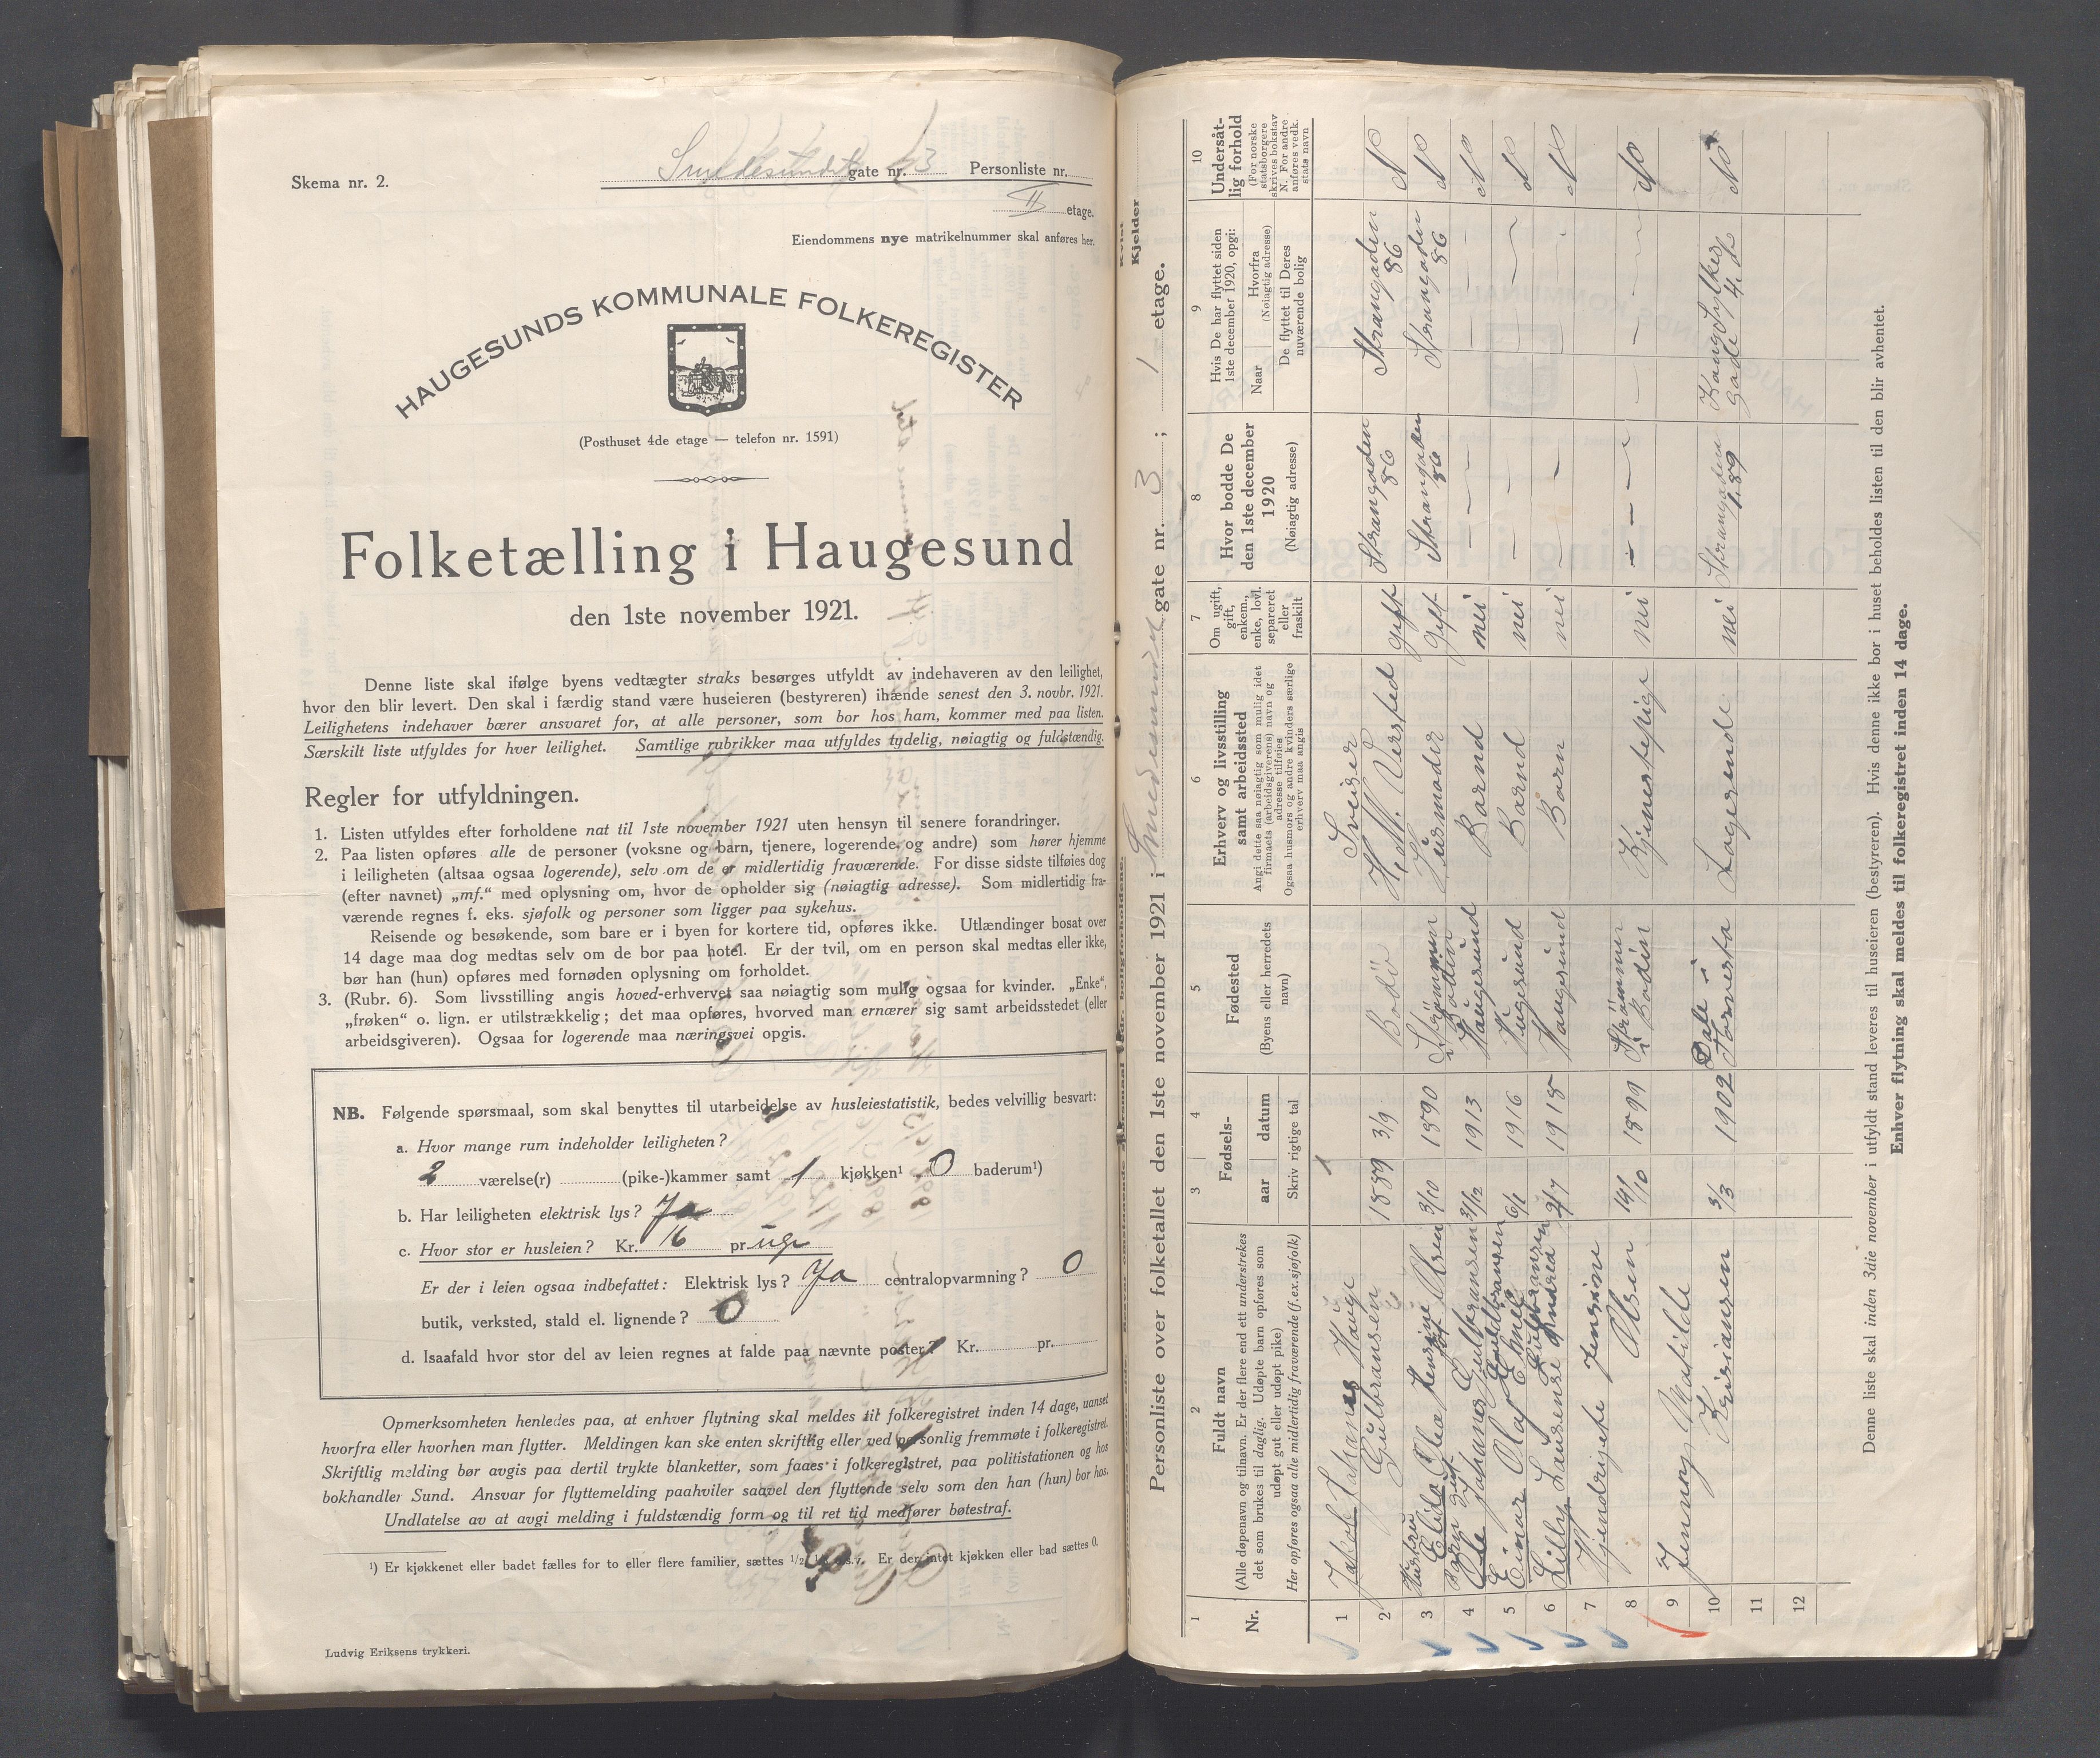 Skema nr. 2.
Smedesundet gate nr. 3 Personliste nr.
II etage.
Eiendommens nye matrikelnummer skal anføres her.
HAUGESUNDS KOMMUNALE FOLKEREGISTER
(Posthuset 4de etage — telefon nr. 1591)
Folketælling i Haugesund
den 1ste november 1921.
Denne liste skal ifølge byens vedtægter straks besørges utfyldt av indehaveren av den leilighet,
hvor den blir levert. Den skal i færdig stand være huseieren (bestyreren) ihænde senest den 3. novbr. 1921.
Leilighetens indehaver bærer ansvaret for, at alle personer, som bor hos ham, kommer med paa listen.
Særskilt liste utfyldes for hver leilighet. Samtlige rubrikker maa utfyldes tydelig, nøiagtig og fuldstændig.
Regler for utfyldningen.
1. Listen utfyldes efter forholdene nat til 1ste november 1921 uten hensyn til senere forandringer.
2. Paa listen opføres alle de personer (voksne og barn, tjenere, logerende og andre) som hører hjemme
i leiligheten (altsaa ogsaa logerende), selv om de er midlertidig fraværende. For disse sidste tilføies dog
(efter navnet) „mf.“ med oplysning om, hvor de opholder sig (nøiagtig adresse). Som midlertidig fra-
værende regnes f. eks. sjøfolk og personer som ligger paa sykehus.
Reisende og besøkende, som bare er i byen for kortere tid, opføres ikke. Utlændinger bosat over
14 dage maa dog medtas selv om de bor paa hotel. Er der tvil, om en person skal medtas eller ikke,
bør han (hun) opføres med fornøden oplysning om forholdet.
3. (Rubr. 6). Som livsstilling angis hoved-erhvervet saa nøiagtig som mulig ogsaa for kvinder. „Enke“,
„frøken“ o. lign. er utilstrækkelig; det maa opføres, hvorved man ernærer sig samt arbeidsstedet (eller
arbeidsgiveren). Ogsaa for logerende maa næringsvei opgis.
NB. Følgende spørsmaal, som skal benyttes til utarbeidelse av husleiestatistik, bedes velvillig besvart:
a. Hvor mange rum indeholder leiligheten?
2 værelse(r) (pike-)kammer samt 1 kjøkken¹ 0 baderum¹)
b. Har leiligheten elektrisk lys? Ja
c. Hvor stor er husleien? Kr. 16 pr. uge
Er der i leien ogsaa indbefattet: Elektrisk lys? Ja centralopvarmning? 0
butik, verksted, stald el. lignende? 0
d. Isaafald hvor stor del av leien regnes at falde paa nævnte poster? Kr. pr.
Opmerksomheten henledes paa, at enhver flytning skal meldes til folkeregistret inden 14 dage, uanset
hvorfra eller hvorhen man flytter. Meldingen kan ske enten skriftlig eller ved personlig fremmøte i folkeregistret.
Skriftlig melding bør avgis paa dertil trykte blanketter, som faaes i folkeregistret, paa politistationen og hos
bokhandler Sund. Ansvar for flyttemelding paahviler saavel den flyttende selv som den han (hun) bor hos.
Undlatelse av at avgi melding i fuldstændig form og til ret tid medfører bøtestraf.
¹) Er kjøkkenet eller badet fælles for to eller flere familier, sættes 1/2, 1/3 o.s.v. Er der intet kjøkken eller bad sættes 0.
Ludvig Eriksens trykkeri.
Kvist
Kjelder
Personliste over folketallet den 1ste november 1921 i Smedesundet gate nr. 3; 1 etage.
1 2 3 4 5 6 7 8 9 10
Nr.
Fuldt navn
(Alle døpenavn og tilnavn. Er der flere end ett understrekes
det som brukes til daglig. Udøpte barn opføres som
udøpt gut eller udøpt pike)
Her opføres ogsaa alle midlertidig fraværende (f.ex.sjøfolk)
Fødsels-
aar datum
Skriv rigtige tal
Fødested
(Byens eller herredets
navn)
Erhverv og livsstilling
samt arbeidssted
Angi dette saa nøiagtig som mulig idet
firmaets (arbeidsgiverens) navn og
adresse tilføies
Ogsaa husmors og andre kvinders særlige
erhverv maa angis
Om ugift,
gift,
enkem.,
enke, lovl.
separeret
eller
fraskilt
Hvor bodde De
den 1ste december
1920
(Nøiagtig adresse)
Hvis De har flyttet siden
1ste december 1920, opgi:
Naar
Hvorfra
(Nøiagtig adresse)
De flyttet til Deres
nuværende bolig
Undersåt-
lig forhold
(For norske
statsborgere
skrives bokstav
N. For andre
anføres vedk.
stats navn
1 Jakob Johannes Hauge Sveiser
2 Gulbransen 1889 3/9 Bodö H. M. Versted gift Strangaden 86 Strangaden 86 N
3 Hustru Elida Olea Olsen 3/10 1890 Strömmen i Bodin Husmoder Gift Strangaden 86 Strangaden 86 N
4 Ole Johannes Gulbransen 31/12 1913 Haugesund Barnd nei — — N
5 Einar Olaf Emil Guldbransen 6/1 1916 Hugesund Barnd nei — — N
6 Lilly Laurense Andrea Gulbransen 2/7 1918 Haugesund Barn nei — — N
7 Hjendrigete Jensine
8 Olsen 14/10 1899 Strömmen i Bodin Kjenestepige nei — — — N
9 Jenny Matilde
10 Kristiansen 3/3 1902 Dale i Torvesta Logerende nei Strangaden 189 gade 4 N
11
12
Denne liste skal inden 3die november i utfyldt stand leveres til huseieren (bestyreren). Hvis denne ikke bor i huset beholdes listen til den blir avhentet.
Enhver flytning skal meldes til folkeregistret inden 14 dage.